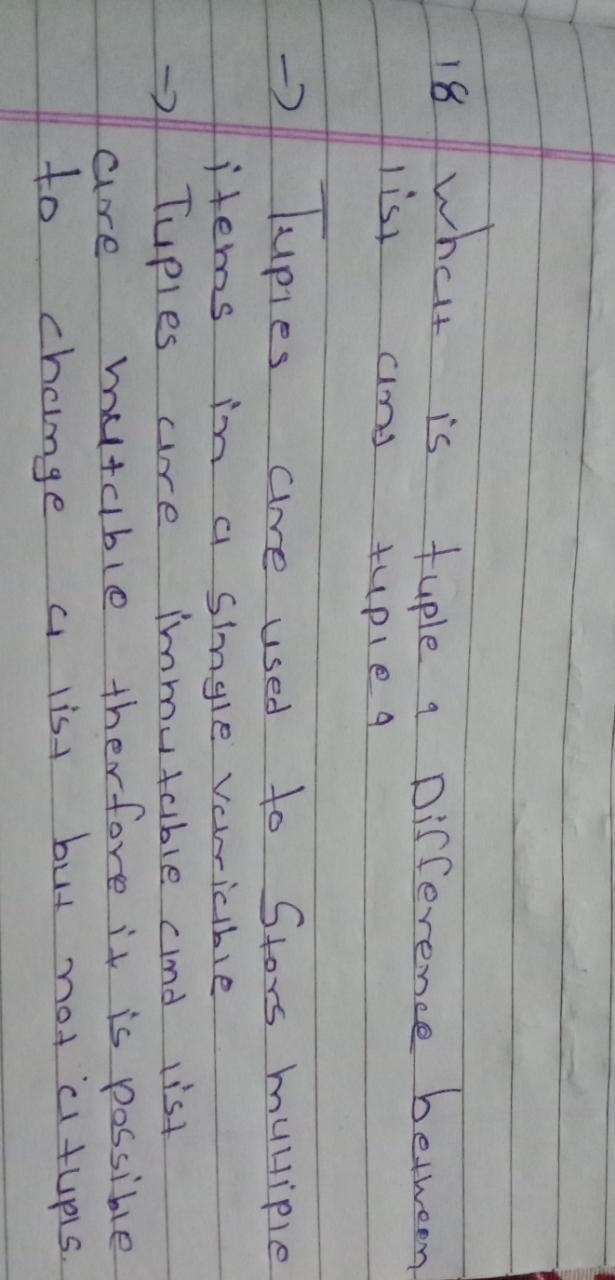 18 What is tuple ? Difference between
list and tuple ?
-> Tuples are used to Stors multiple
items in a single variable
-> Tuples are immutable and list
are mutable therfore it is possible
to change a list but not a tupls.